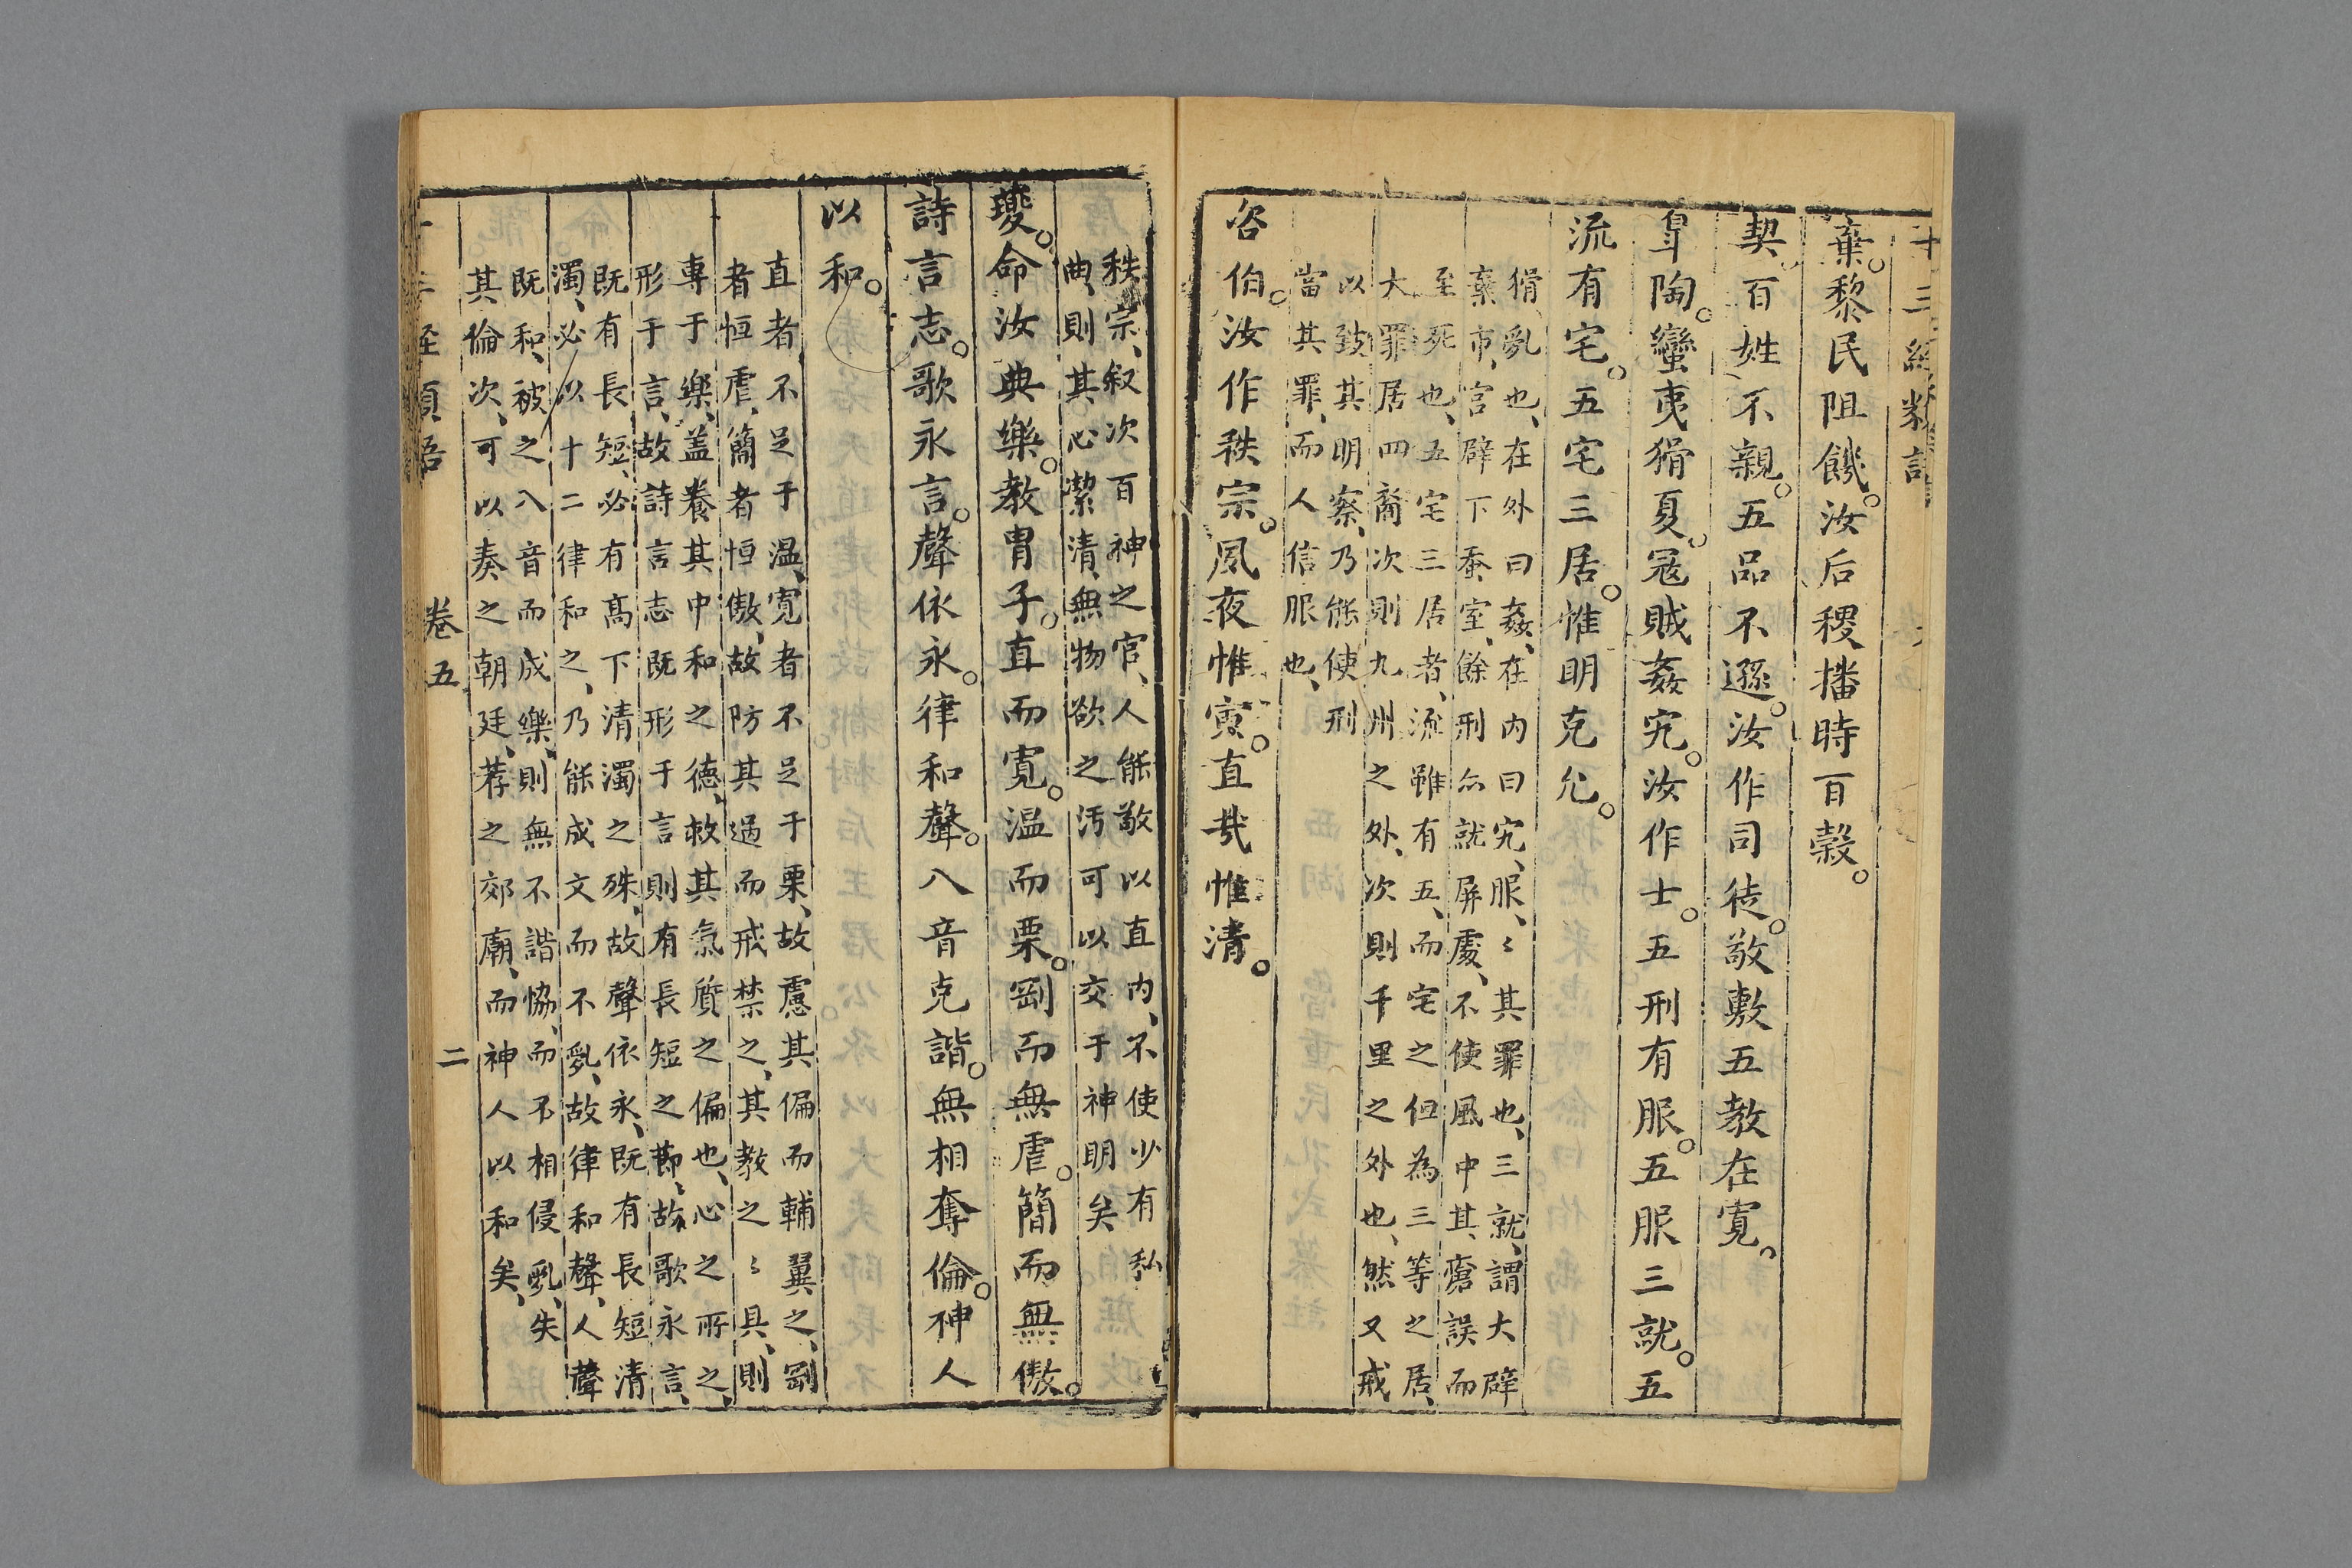 棄。黎民阻饑。汝后稷播時百穀。
契。百姓不親。五品不遜。汝作司徒。敬敷五教在寬。
皐陶。蠻夷猾夏。寇賊姦宄。汝作士。五刑有服。五服三就。五
流有宅。五宅三居。惟明克允。
猾亂也、在外曰姦、在内曰宄、服、〻其罪也、三就、謂大辟
棄市、宮辟下蚕室、餘刑亦就屏處、不使風中其瘡誤而
至死也、五宅三居者、流雖有五、而宅之但為三等之居、
大罪居四裔次則九州之外、次則千里之外也、然又戒
以致其明察、乃能使刑
當其罪、而人信服也、
咨伯。汝作秩宗。夙夜惟寅。直哉惟清。
秩宗、叙次百神之官、人能敬以直内、不使少有私
曲、則其心潔清、無物欲之汚可以交于神明矣
夔。命汝典樂。教胄子。直而寬。温而栗。剛而無虐。簡而無傲。
詩言志。歌永言。聲依永。律和聲。八音克諧。無相奪倫。神人
以和。
直者不足于温、寬者不足于栗、故慮其偏而輔翼之、剛
者恒虐、簡者恒傲、故防其過而戒禁之、其教之〻具、則
專于樂、盖養其中和之德、救其氣質之偏也、心之所之、
形于言、故詩言志既形于言則有長短之節、故歌永言、
既有長短、必有高下清濁之殊、故聲依永、既有長短清
濁、必以十二律和之、乃能成文而不亂、故律和聲、人聲
既和、被之八音而成樂、則無不諧恊、而不相侵亂、失
其倫次、可以奏之朝廷、荐之郊廟、而神人以和矣、
卷五
二